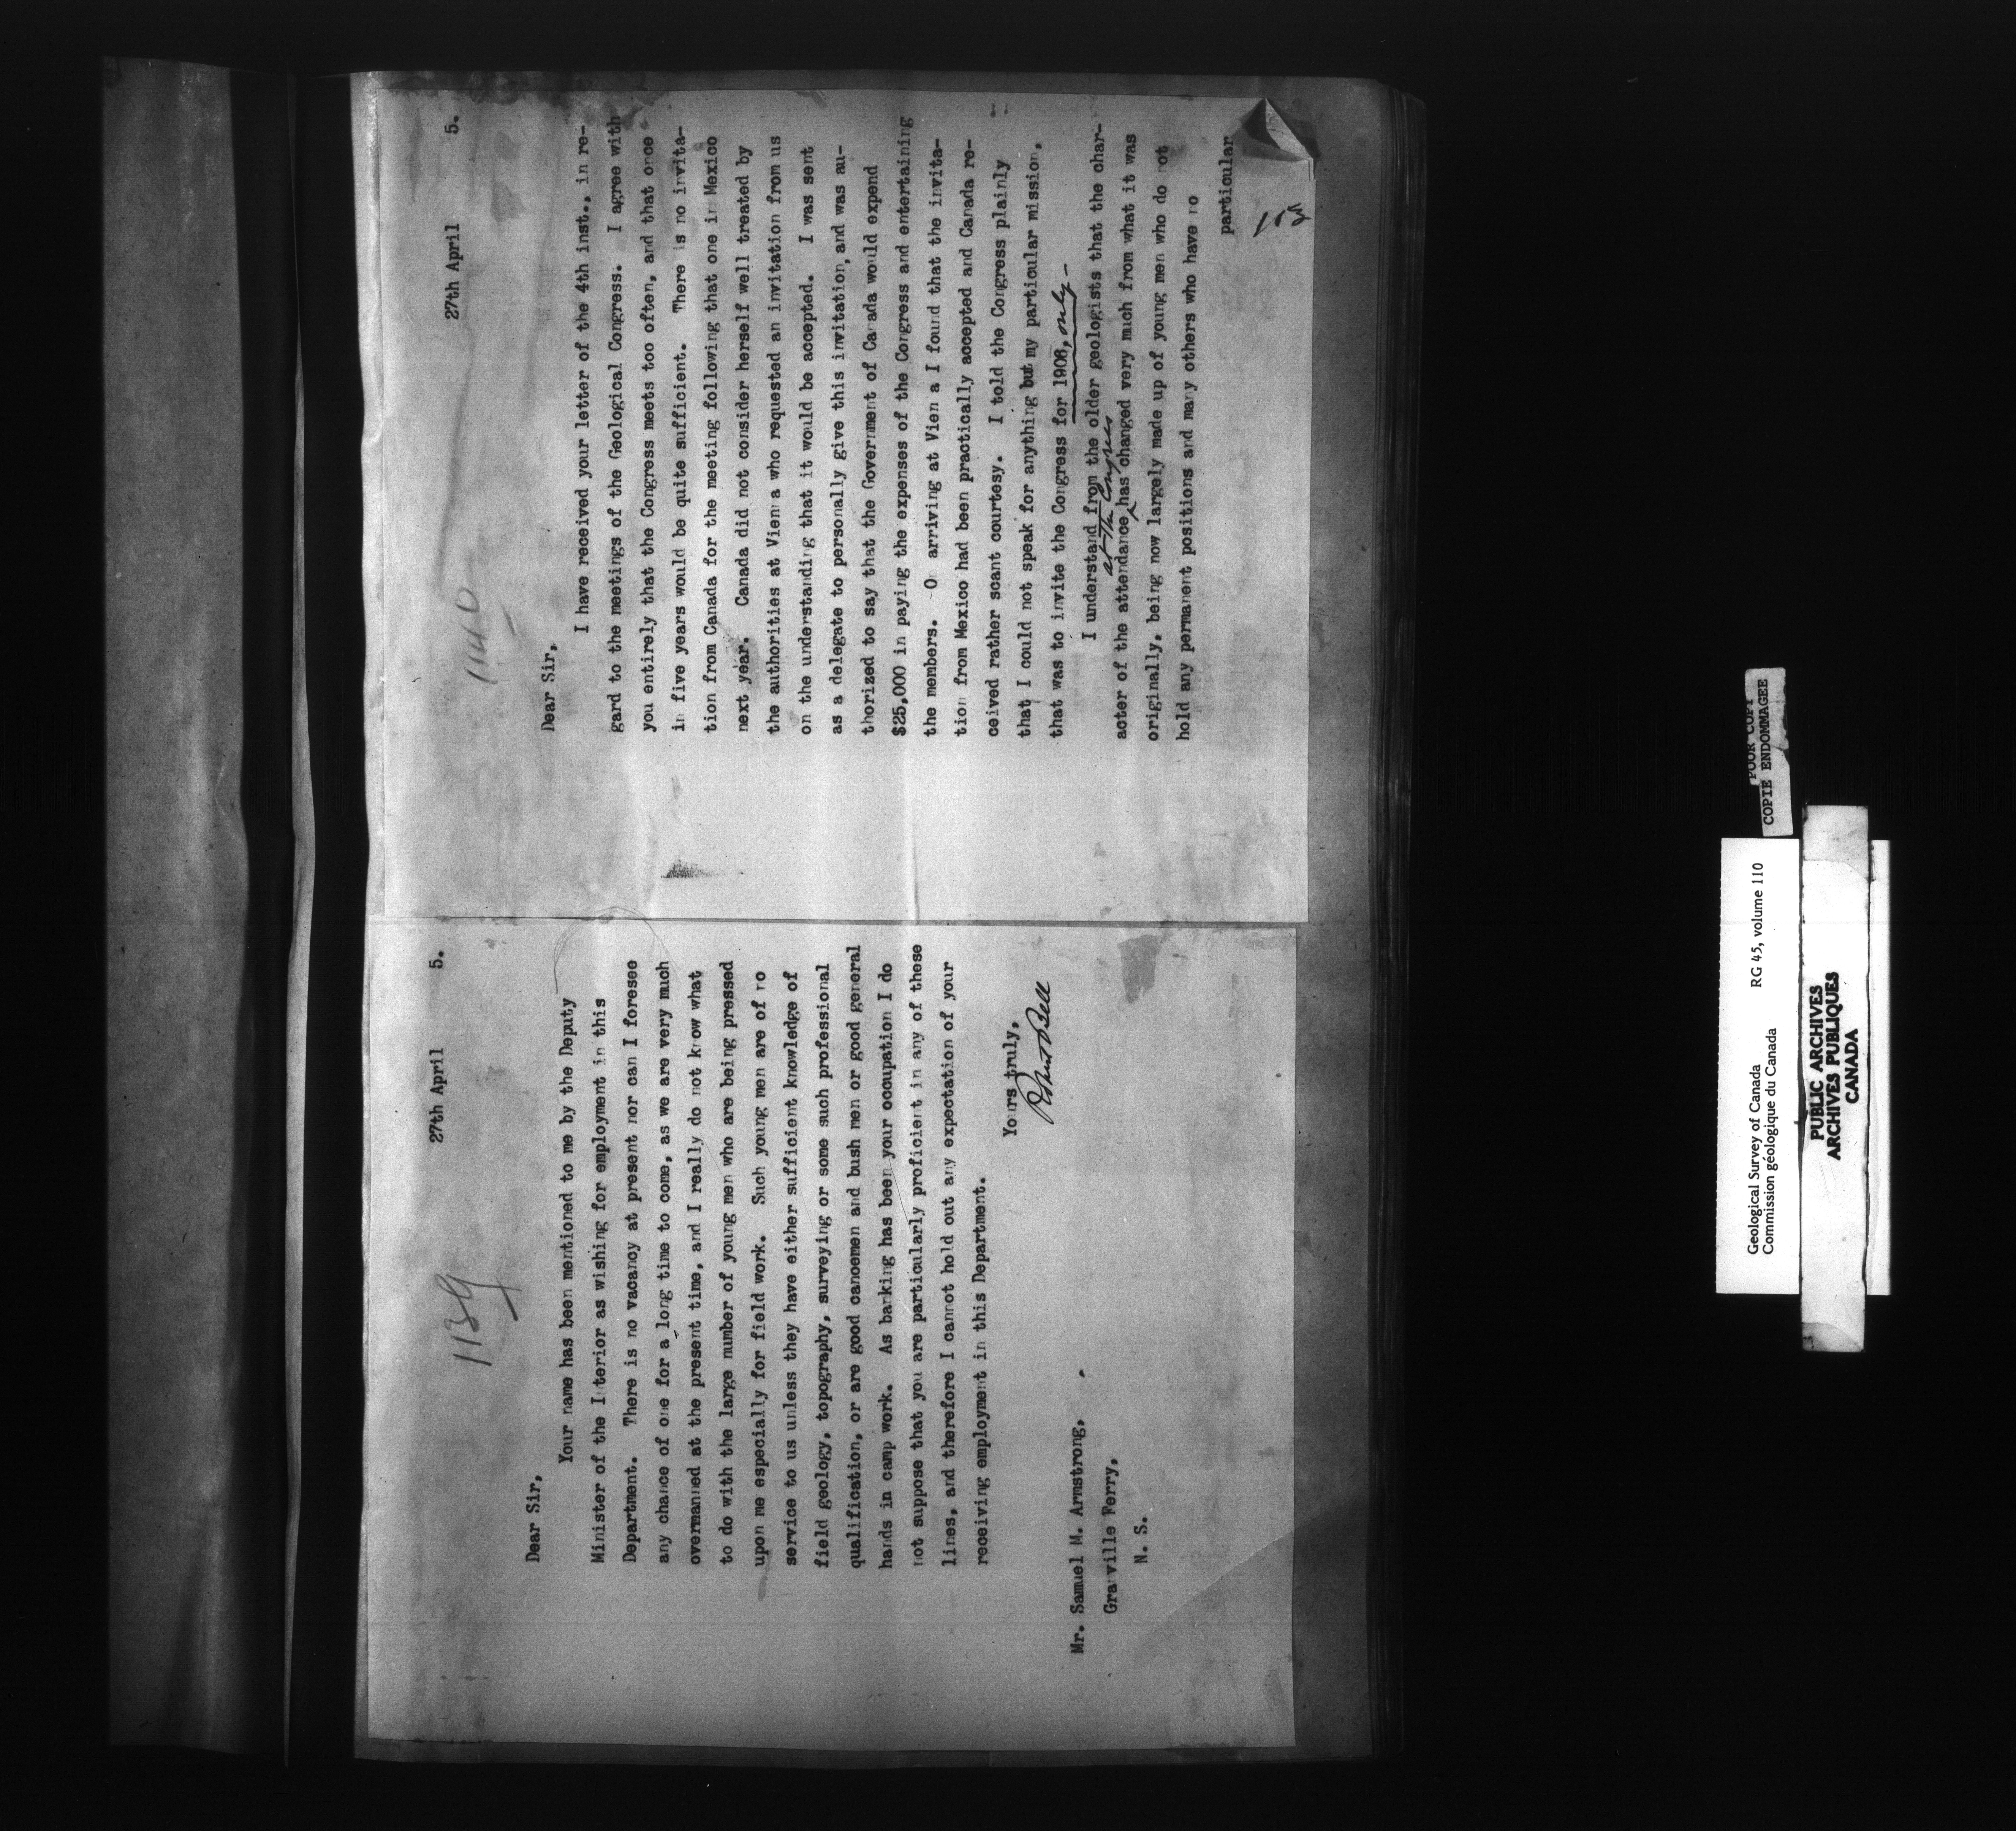 1139
27th April 5.
Dear Sir,
Your name has been mentioned to me by the Deputy
Minister of the Interior as wishing for employment in this
Department. There is no vacancy at present nor can I foresee
any chance of one for a long time to come, as we are very much
overmanned at the present time, and I really do not know what
to do with the large number of young men who are being pressed
upon me especially for field work. Such young men are of no
service to us unless they have either sufficient knowledge of
field geology, topography, surveying or some such professional
qualification, or are good canoemen and bush men or good general
hands in camp work. As banking has been your occupation I do
not suppose that you are particularly proficient in any of these
lines, and therefore I cannot hold out any expectation of your
receiving employment in this Department.
Yours truly,
Robert Bell
Mr. Samuel M. Armstrong,
Granville Ferry,
N. S.
1140
27th April 5.
Dear Sir,
I have received your letter of the 4th inst., in re-
gard to the meetings of the Geological Congress. I agree with
you entirely that the Congress meets too often, and that once
in five years would be quite sufficient. There is no invita-
tion from Canada for the meeting following that one in Mexico
next year. Canada did not consider herself well treated by
the authorities at Vienna who requested an invitation from us
on the understanding that it would be accepted. I was sent
as a delegate to personally give this invitation, and was au-
thorized to say that the Government of Canada would expend
$25,000 in paying the expenses of the Congress and entertaining
the members. On arriving at Vienna I found that the invita-
tion from Mexico had been practically accepted and Canada re-
ceived rather scant courtesy. I told the Congress plainly
that I could not speak for anything but my particular mission,
that was to invite the Congress for 1906, only –
I understand from the older geologists that the char-
acter of the attendance at the Congress has changed very much from what it was
originally, being now largely made up of young men who do not
hold any permanent positions and many others who have no
particular
POOR COPY
COPIE ENDOMMAGEE
Geological Survey of Canada RG 45, volume 110
Commission géologique du Canada
PUBLIC ARCHIVES
ARCHIVES PUBLIQUES
CANADA